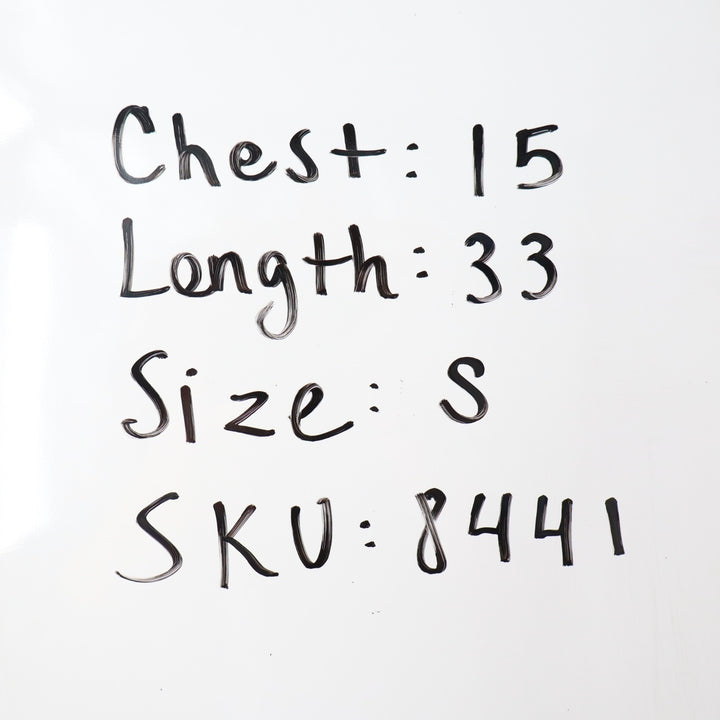 Chest: 15
Length: 33
Size: S
SKU: 8441